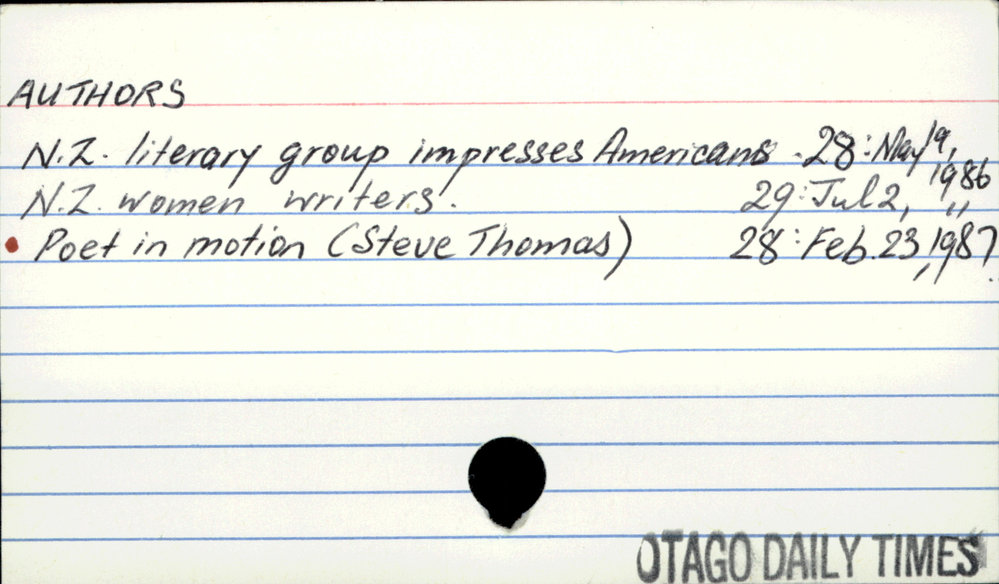 AUTHORS
N.Z. literary group impresses Americans. 28: May 19, 1986
N.Z. women writers. 29: Jul 2, "
• Poet in motion (Steve Thomas) 28: Feb. 23, 1987
OTAGO DAILY TIMES